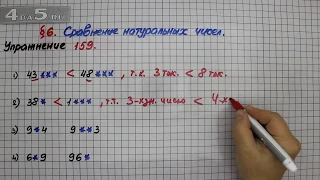 4DA5.RU
§6. Сравнение натуральных чисел.
Упражнение 159.
1) 43*** < 48***, т.к. 3 тыс. < 8 тыс.
2) 38* < 1***, т.к. 3-хзн. число < 4-х
3) 9*4 9**3
4) 6*9 96*